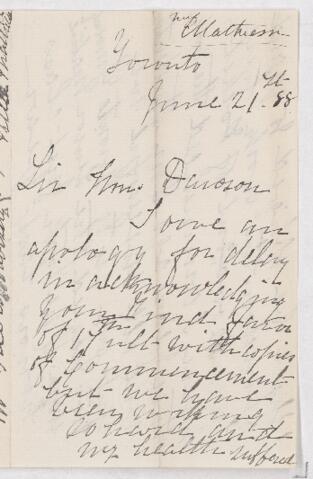 Mrs
Mathieson
Toronto
June 21st 88
Sir Wm. Dawson
I owe an
apology for delay
in acknowledging
your kind favor
of 1st ult with copies
of Commencement
but we have
been working
so hard and
my health suffered